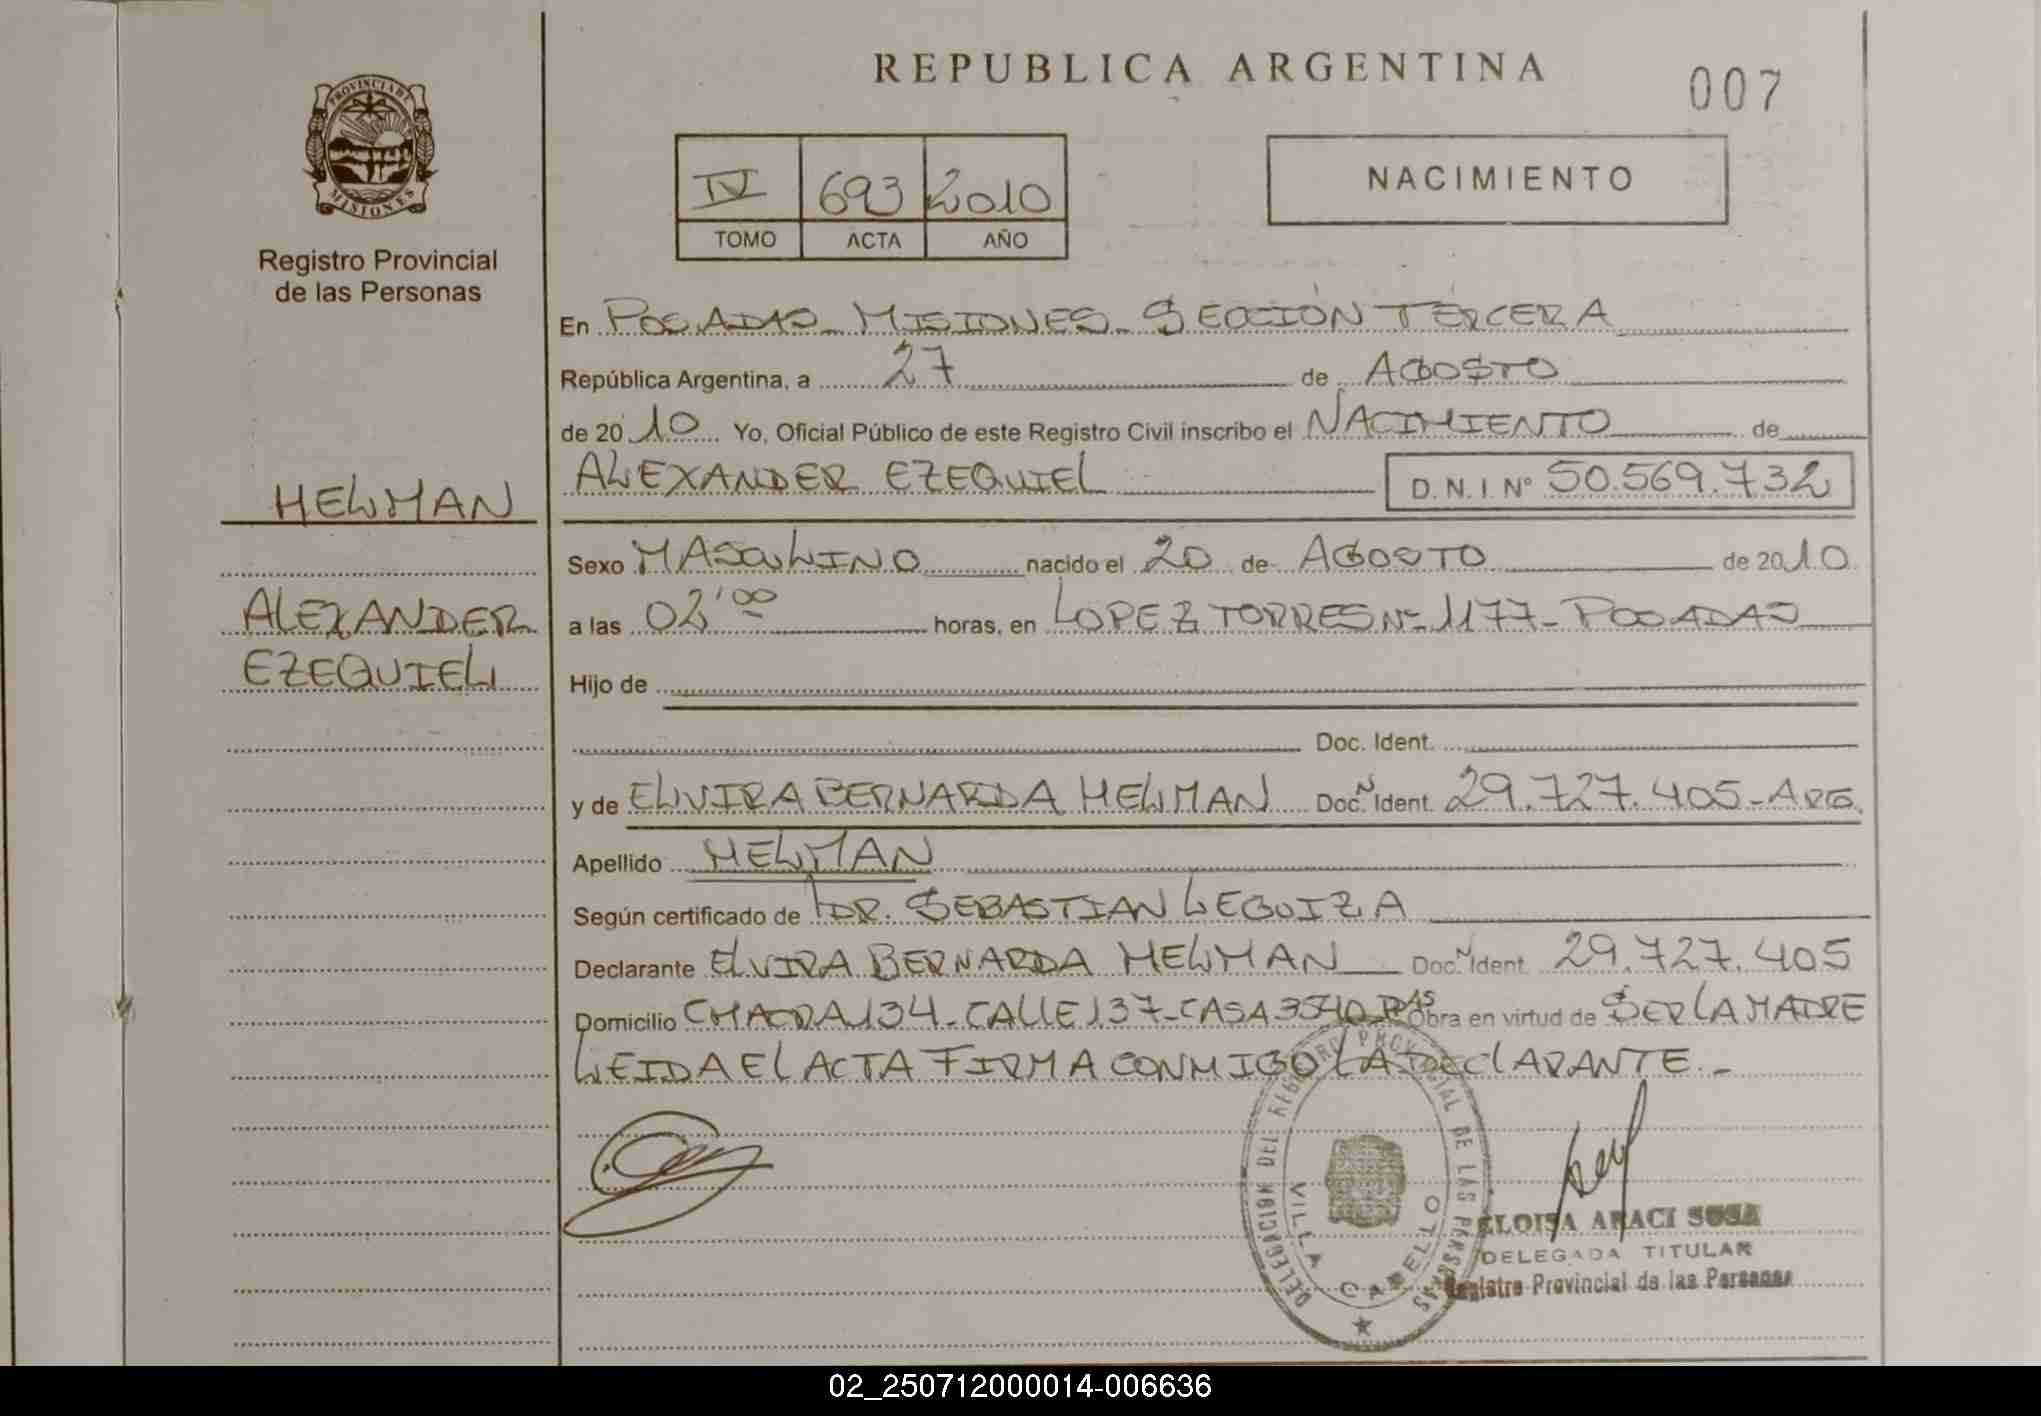 REPUBLICA ARGENTINA
007
PROVINCIA DE
MISIONES
Registro Provincial
de las Personas
IV 693 2010
TOMO ACTA AÑO
NACIMIENTO
En POSADAS MISIONES - SECCIÓN TERCERA
República Argentina, a 27 de AGOSTO
de 2010 Yo, Oficial Público de este Registro Civil inscribo el NACIMIENTO de
ALEXANDER EZEQUIEL D.N.I. Nº 50.569.732
HELMAN
ALEXANDER
EZEQUIEL
Sexo MASCULINO nacido el 20 de AGOSTO de 2010
a las 02'00 horas, en LOPEZ TORRES Nº 1177 - POSADAS
Hijo de
Doc. Ident.
y de ELVIRA BERNARDA HELMAN Doc. N Ident. 29.727.405 - ARG.
Apellido HELMAN
Según certificado de DR. SEBASTIAN LEGUIZA
Declarante ELVIRA BERNARDA HELMAN Doc. N Ident. 29.727.405
Domicilio CHACRA 134 - CALLE 137 - CASA 3540 PDAS Obra en virtud de SER LA MADRE
LEIDA EL ACTA FIRMA CONMIGO LA DECLARANTE. -
DELEGACION DEL REGISTRO PROVINCIAL DE LAS PERSONAS
VILLA CABELLO
ELOISA ARACI SOSA
DELEGADA TITULAR
Registro Provincial de las Personas
02_250712000014-006636